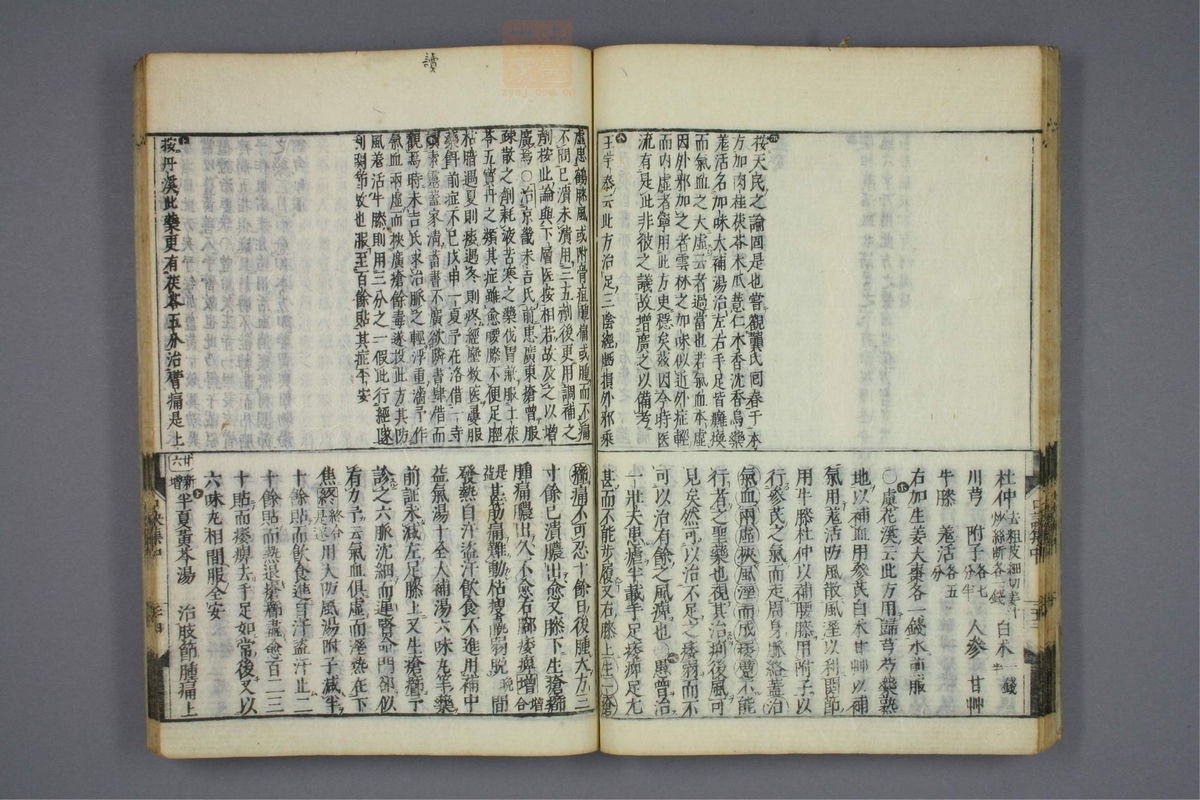 按天民之論固是也嘗觀龔氏囘春于一本
方加肉桂茯苓木瓜薏仁木香沈香烏藥
羗活名加味大補湯治左右手足皆癱瘓
而氣血之大虛云者過當也若氣血本虛
因外邪加之者雲林之加味似近外症輕
而內虛者寧用此方更穩矣茲因今時医
流有是此非彼之議故增廣之以備考
王宇泰云此方治足三陰經虧損外邪乘
杜仲去粗皮細切姜汁炒絲断各一錢 白朮一錢半
川芎 附子各七分半 人參 甘艸
牛膝 羗活各五分
右加生姜大棗各一錢水煎服
○虛花溪云此方用歸芎芍藥熟
地以補血用參芪白朮甘艸以補
氣用羗活防風散風溼以利關節
用牛膝杜仲以補腰膝用附子以
行參芪之氣而走周身脈絡蓋治
氣血兩虛挾風溼而成痿躄不能
行者之聖藥也視其治痢後風可
見矣然可以治不足之痿弱而不
可以治有餘之風痺也○愚曾治
一壯夫患瘧半載手足痿痺足尤
甚而不能步履又右膝上生一瘡
虛患鶴膝風或附骨疽腫痛或腫而不痛
不問已潰未潰用三五劑後更用調補之
劑按此論與下層医按相若故及之以增
廣焉○治京畿未吉氏前患廣東瘡曾服
疎散之劑耗液苦寒之藥伐胃兼服土茯
苓五寶丹之類其症雖愈腰膝不便足脛
枯瞻遇夏則痿遇冬則疼經歷数医曼服
藥餌前症不已戊申一夏予在洛借一寺
氣血兩虛而挾廣瘡餘毒遂投此方其防
風羗活牛膝則用三分之一假此行經隧
利関節故也服至百餘貼其症平安
按丹溪此藥更有茯苓五分治臂痛是上
痛不可忍十餘日後腫大方三
寸餘已潰膿出愈又膝下生瘡痛
腫痛膿出久不愈右脚痿與增
發熱自汗盜汗飲食不進用補中
益氣湯十全大補湯六味丸等藥
前証未減左足膝上又生瘡予
診之六脈沈細而遲腎命門部似
看力予云氣血俱虛而溼熱在下
焦用大防風湯附子減半
十餘貼而飲食進自汗盜汗止二
十餘貼而熱退瘡痛盡愈百二三
十貼而痿痺去手足如常後又以
六味丸相間服全安
廿六 新增 半夏黃芩湯 治肢節腫痛上
讀